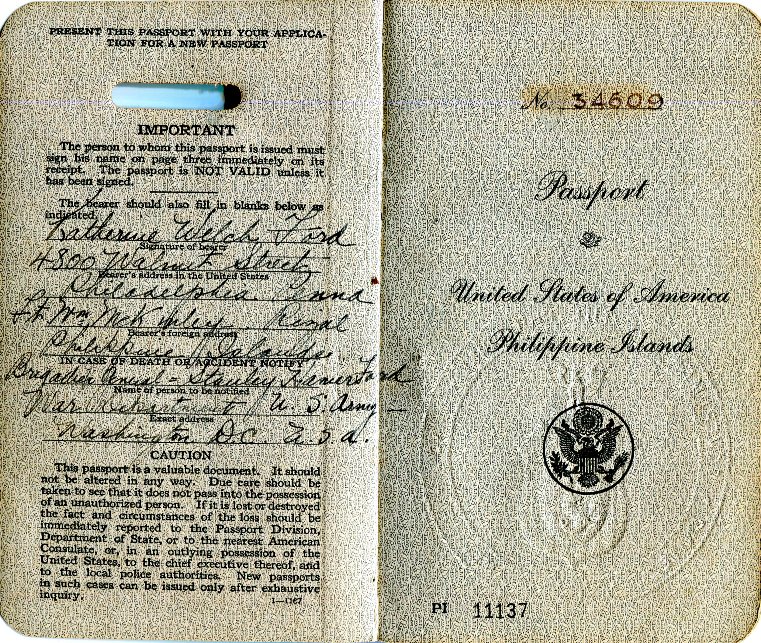 PRESENT THIS PASSPORT WITH YOUR APPLICA-
TION FOR A NEW PASSPORT
IMPORTANT
The person to whom this passport is issued must
sign his name on page three immediately on its
receipt. The passport is NOT VALID unless it
has been signed.
The bearer should also fill in blanks below as
indicated.
Katherine Welch Ford
Signature of bearer
4800 Walnut Street
Bearer's address in the United States
Philadelphia Penna
Ft. Wm McKinley Rizal
Bearer's foreign address
Islands
IN CASE OF DEATH OR ACCIDENT NOTIFY
Brigadier General - Stanley Hamer Ford
Name of person to be notified
War Department U. S. Army -
Exact address
Washington D.C. U.S.A.
CAUTION
This passport is a valuable document. It should
not be altered in any way. Due care should be
taken to see that it does not pass into the possession
of an unauthorized person. If it is lost or destroyed
the fact and circumstances of the loss should be
immediately reported to the Passport Division,
Department of State, or to the nearest American
Consulate, or, in an outlying possession of the
United States, to the chief executive thereof, and
to the local police authorities. New passports
in such cases can be issued only after exhaustive
inquiry.
1—1167
No 34609
Passport
United States of America
Philippine Islands
PI 11137